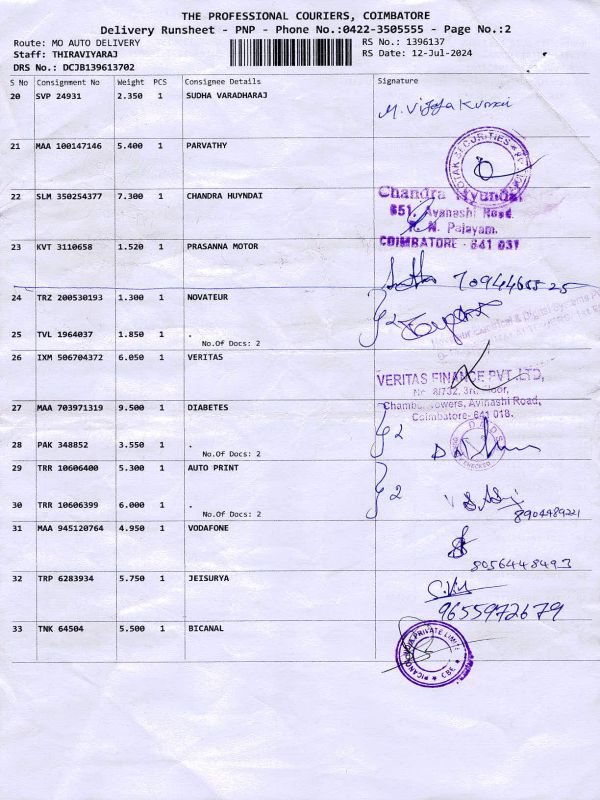 THE PROFESSIONAL COURIERS, COIMBATORE
Delivery Runsheet - PNP - Phone No.:0422-3505555 - Page No.:2
Route: MO AUTO DELIVERY
RS No.: 1396137
Staff: THIRAVIYARAJ
RS Date: 12-Jul-2024
DRS No.: DCJB139613702
S No Consignment No Weight PCS Consignee Details Signature
20 SVP 24931 2.350 1 SUDHA VARADHARAJ
21 MAA 100147146 5.400 1 PARVATHY
KOTAK SECURITIES
22 SLM 350254377 7.300 1 CHANDRA HUYNDAI
Chandra Hyundai
651, Avanashi Road.
P. N. Palayam.
COIMBATORE - 641 037
23 KVT 3110658 1.520 1 PRASANNA MOTOR
24 TRZ 200530193 1.300 1 NOVATEUR
2
25 TVL 1964037 1.850 1 .
No.Of Docs: 2
26 IXM 506704372 6.050 1 VERITAS
VERITAS FINANCE PVT .LTD,
No 8/732, 3rd Floor,
Towers, Avinashi Road,
Coimbatore- 641 018.
27 MAA 703971319 9.500 1 DIABETES
2
28 PAK 348852 3.550 1 .
No.Of Docs: 2
CHECKED
29 TRR 10606400 5.300 1 AUTO PRINT
2
30 TRR 10606399 6.000 1 .
No.Of Docs: 2
8904489221
31 MAA 945120764 4.950 1 VODAFONE
8056448493
32 TRP 6283934 5.750 1 JEISURYA
9655972679
33 TNK 64504 5.500 1 BICANAL
PRIVATE LIMITED
CBE